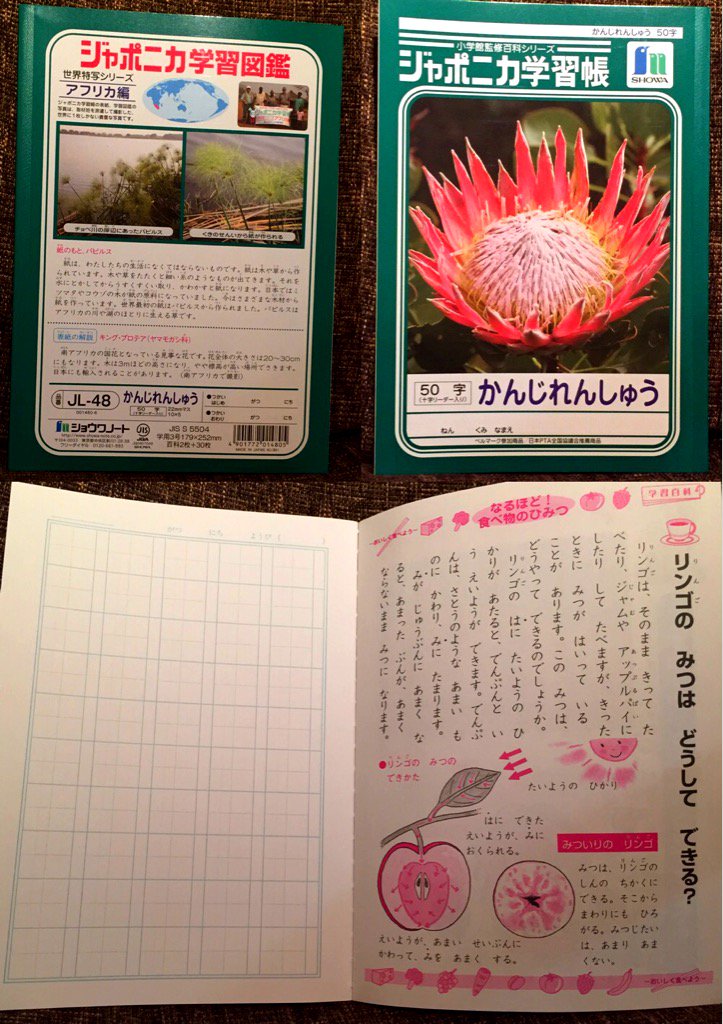 ジャポニカ学習図鑑
世界特写シリーズ
アフリカ編
ジャポニカ学習帳の表紙、学習図鑑の
写真は、取材班を派遣して撮影した、
世界に1枚しかない貴重な写真です。
チョベ川の岸辺にあったパピルス
くきのせんいから紙が作られる
紙のもと、パピルス
紙は、わたしたちの生活になくてはならないものです。紙は木や草から作
られています。木や草をたたくと細い糸のようなものが出てきます。それを
水にとかしてからうすくすくい取り、かわかすと紙になります。日本ではミ
ツマタやコウゾの木が紙の原料になっていました。今はさまざまな木材から
紙を作っています。世界最初の紙はパピルスから作られました。パピルスは
アフリカの川や湖のほとりに生える草です。
表紙の解説
キング・プロテア(ヤマモガシ科)
南アフリカの国花となっている見事な花です。花全体の大きさは20〜30cm
にもなります。木は3mほどの高さになり、やや標高が高い場所でできます。
日本にも輸入されることがあります。(南アフリカで撮影)
品番 JL-48 かんじれんしゅう
50 字 (十字リーダー入り) 22mmマス 10×5
●つかいはじめ がつ にち
●つかいおわり がつ にち
ショウワノート
JIS S 5504
学用3号179×252mm
百科2枚+30枚
4901772014805
かんじれんしゅう 50字
小学館監修百科シリーズ
ジャポニカ学習帳
SHOWA
50 字
(十字リーダー入り)
かんじれんしゅう
ねん くみ なまえ
ベルマーク参加商品 日本PTA全国協議会推薦商品
がつ にち ようび ( )
学習百科
なるほど!
食べ物のひみつ
〜おいしく食べよう〜
リンゴの みつは どうして できる?
リンゴは、そのまま きって た
べたり、ジャムや アップルパイに
したり して たべますが、きった
ときに みつが はいって いる
ことが あります。この みつは、
どうやって できるのでしょうか。
リンゴの はに たいようの ひ
かりが あたると、でんぷんと い
う えいようが できます。でんぷ
んは、さとうのような あまい も
のに かわり、みに たまります。
みが じゅうぶんに あまく な
ると、あまった ぶんが、あまく
ならないまま みつに なります。
●リンゴの みつの
できかた
たいようの ひかり
はに できた
えいようが、みに
おくられる。
えいようが、あまい せいぶんに
かわって、みを あまく する。
みついりの リンゴ
みつは、リンゴの
しんの ちかくに
できる。そこから
まわりにも ひろ
がる。みつじたい
は、あまり あま
くない。
〜おいしく食べよう〜